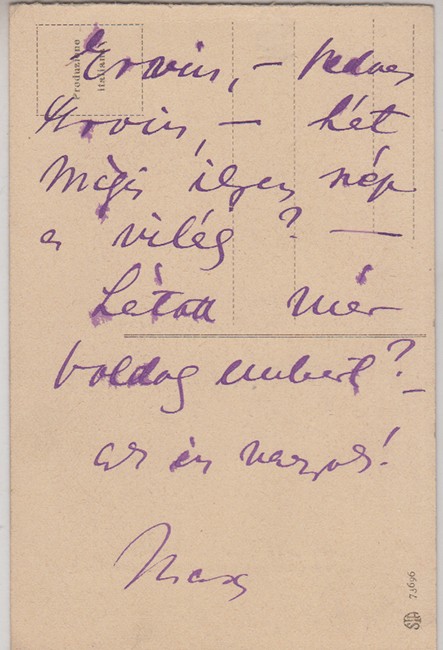 Produzione
italiana
Ervin, – kedves
Ervin, – hát
mégis ilyen szép
a világ? —
Látott már
boldog embert? –
az én vagyok!
Max
73696